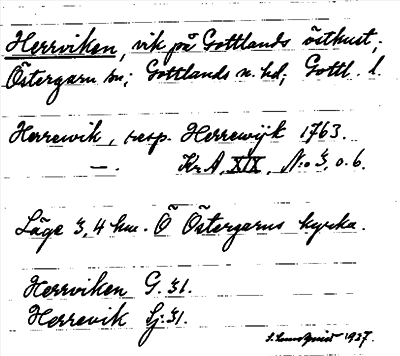 Herrviken, vik på Gottlands östkust;
Östergarn sn; Gottlands n. hd; Gottl. l.
Herrewik, resp. Herrewijk 1763.
—. Kr. A, XIX, N:o 3, o. 6.
Läge 3,4 km. Ö Östergarns kyrka.
Herrviken G. 31.
Herrevik Sj: 31.
1927.